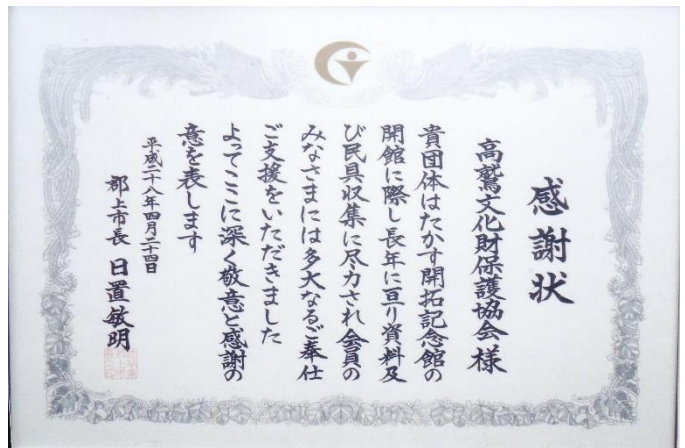 感謝状
高鷲文化財保護協会様
貴団体はたかす開拓記念館の
開館に際し長年に亘り資料及
び民具収集に尽力され会員の
みなさまには多大なるご奉仕
ご支援をいただきました
よってここに深く敬意と感謝の
意を表します
平成二十八年四月二十四日
郡上市長 日置敏明